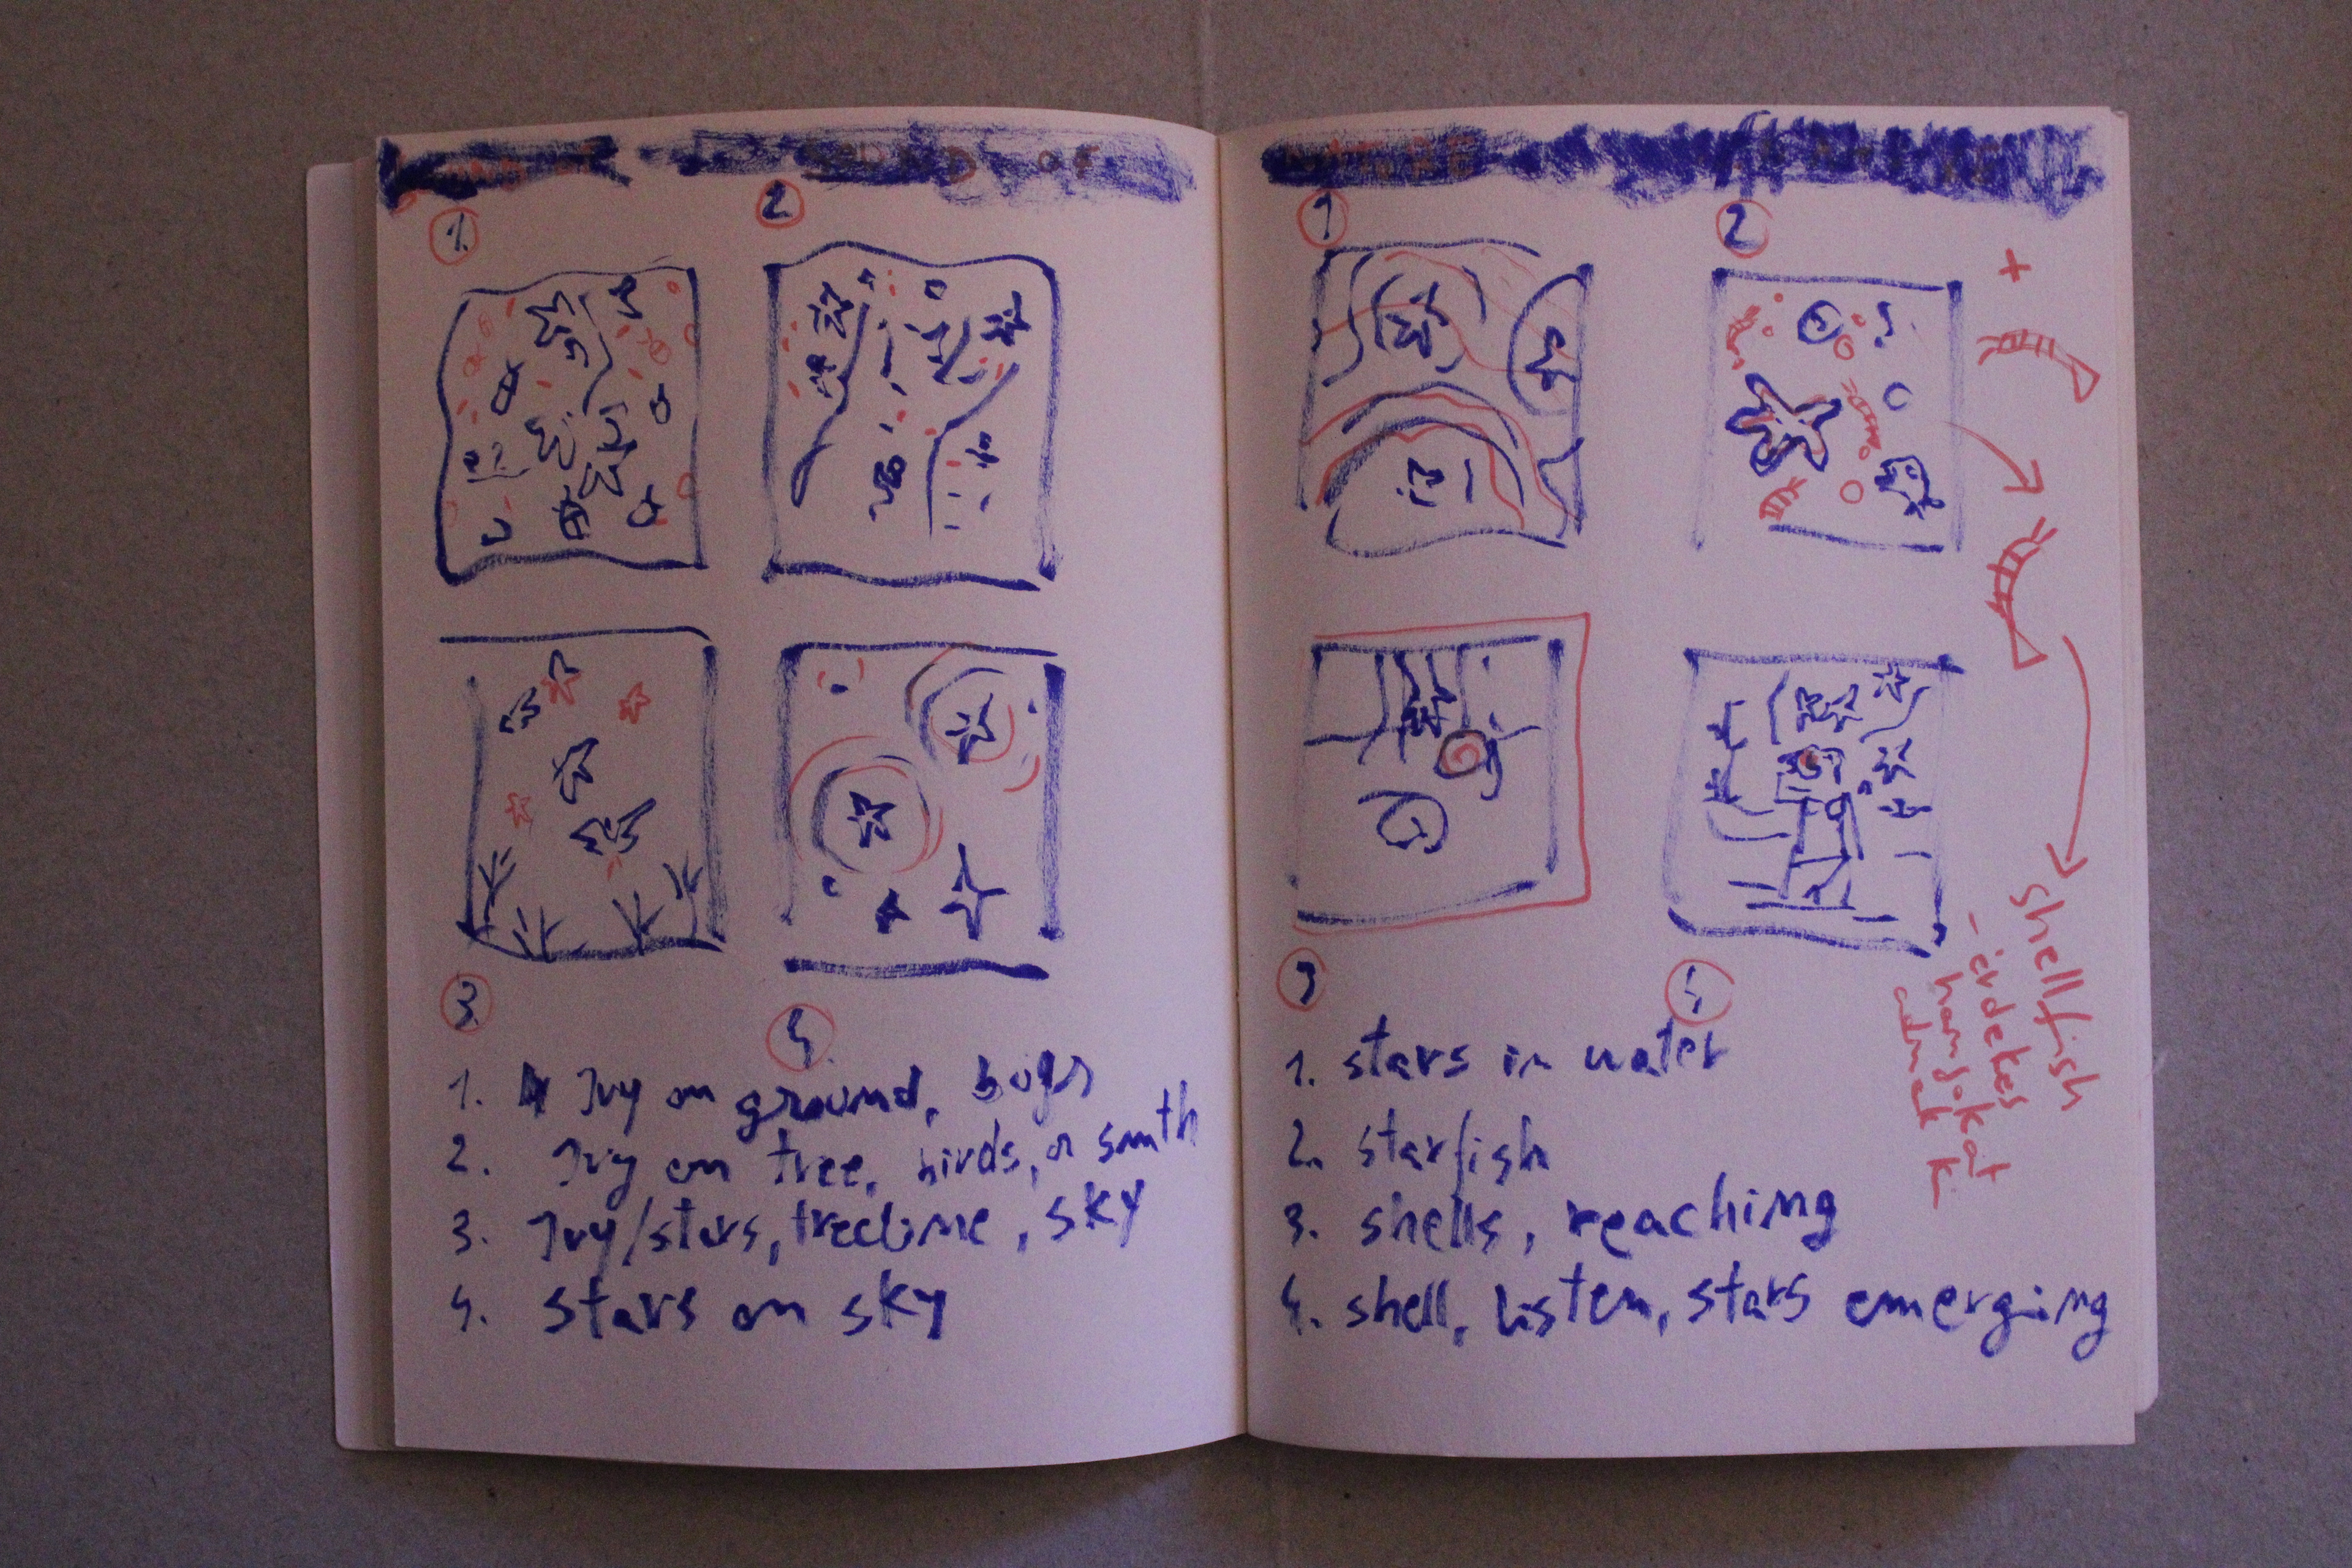 OF
1.
2
3.
4.
1. Ivy on ground, bugs
2. Ivy on tree, birds, or smth
3. Ivy/stars, treeline, sky
4. stars on sky
1
2
+
3
4
shellfish
- érdekes
hangokat
adnak k.
1. stars in water
2. starfish
3. shells, reaching
4. shell, listen, stars emerging